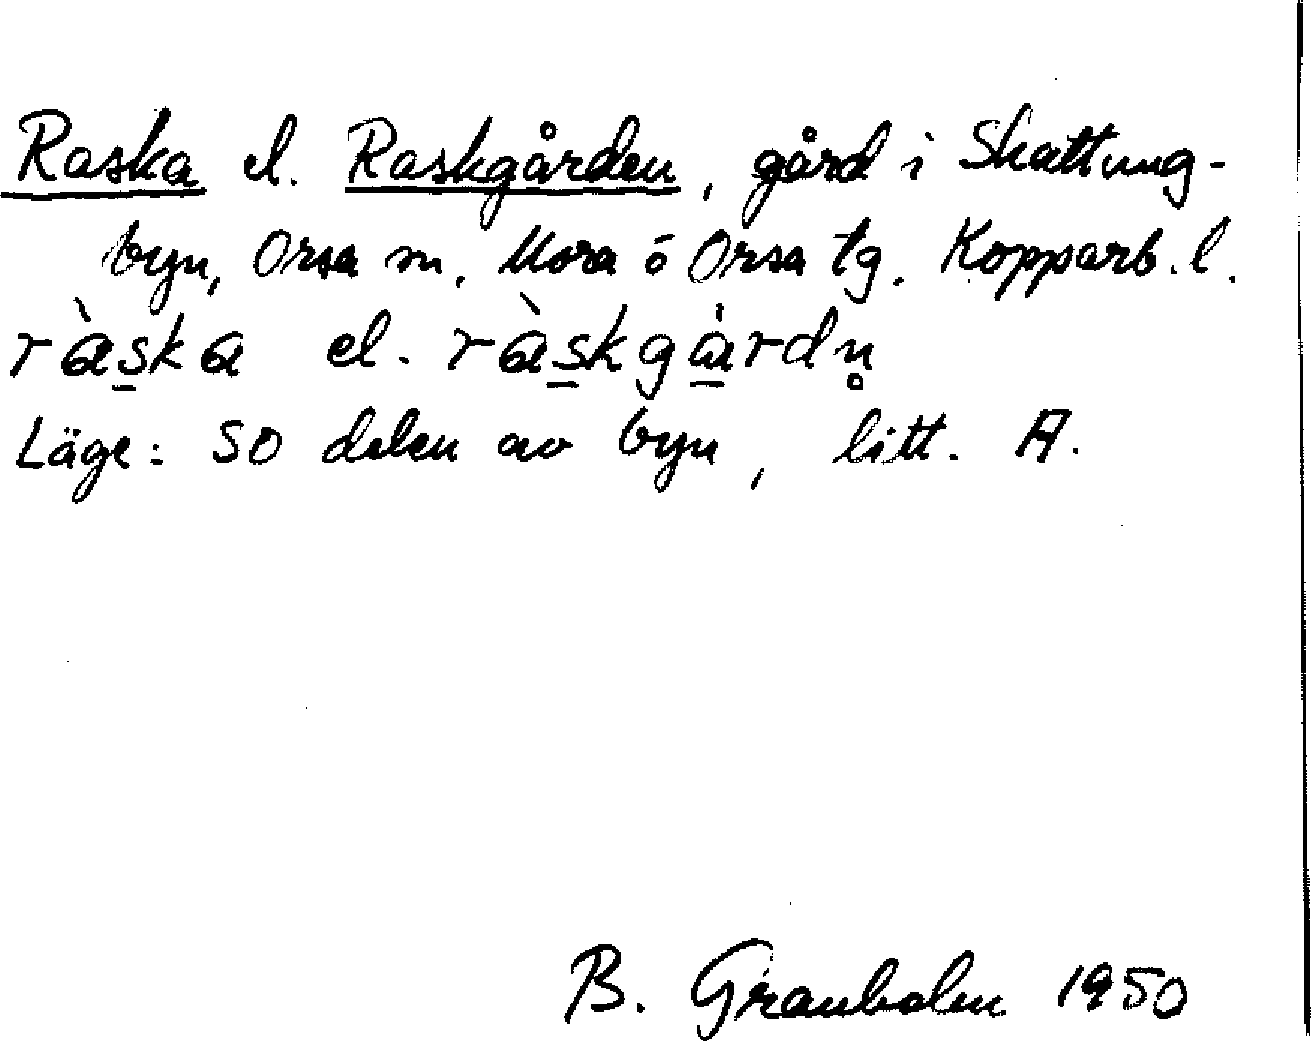 Raska el. Raskgården, gård i Skattung-
byn, Orsa sn, Mora o Orsa tg. Kopparb. l.
ràs̲ka el. ràs̲kgȧ̲rdn̥
Läge: SO delen av byn, litt. A.
B. Granholm 1950